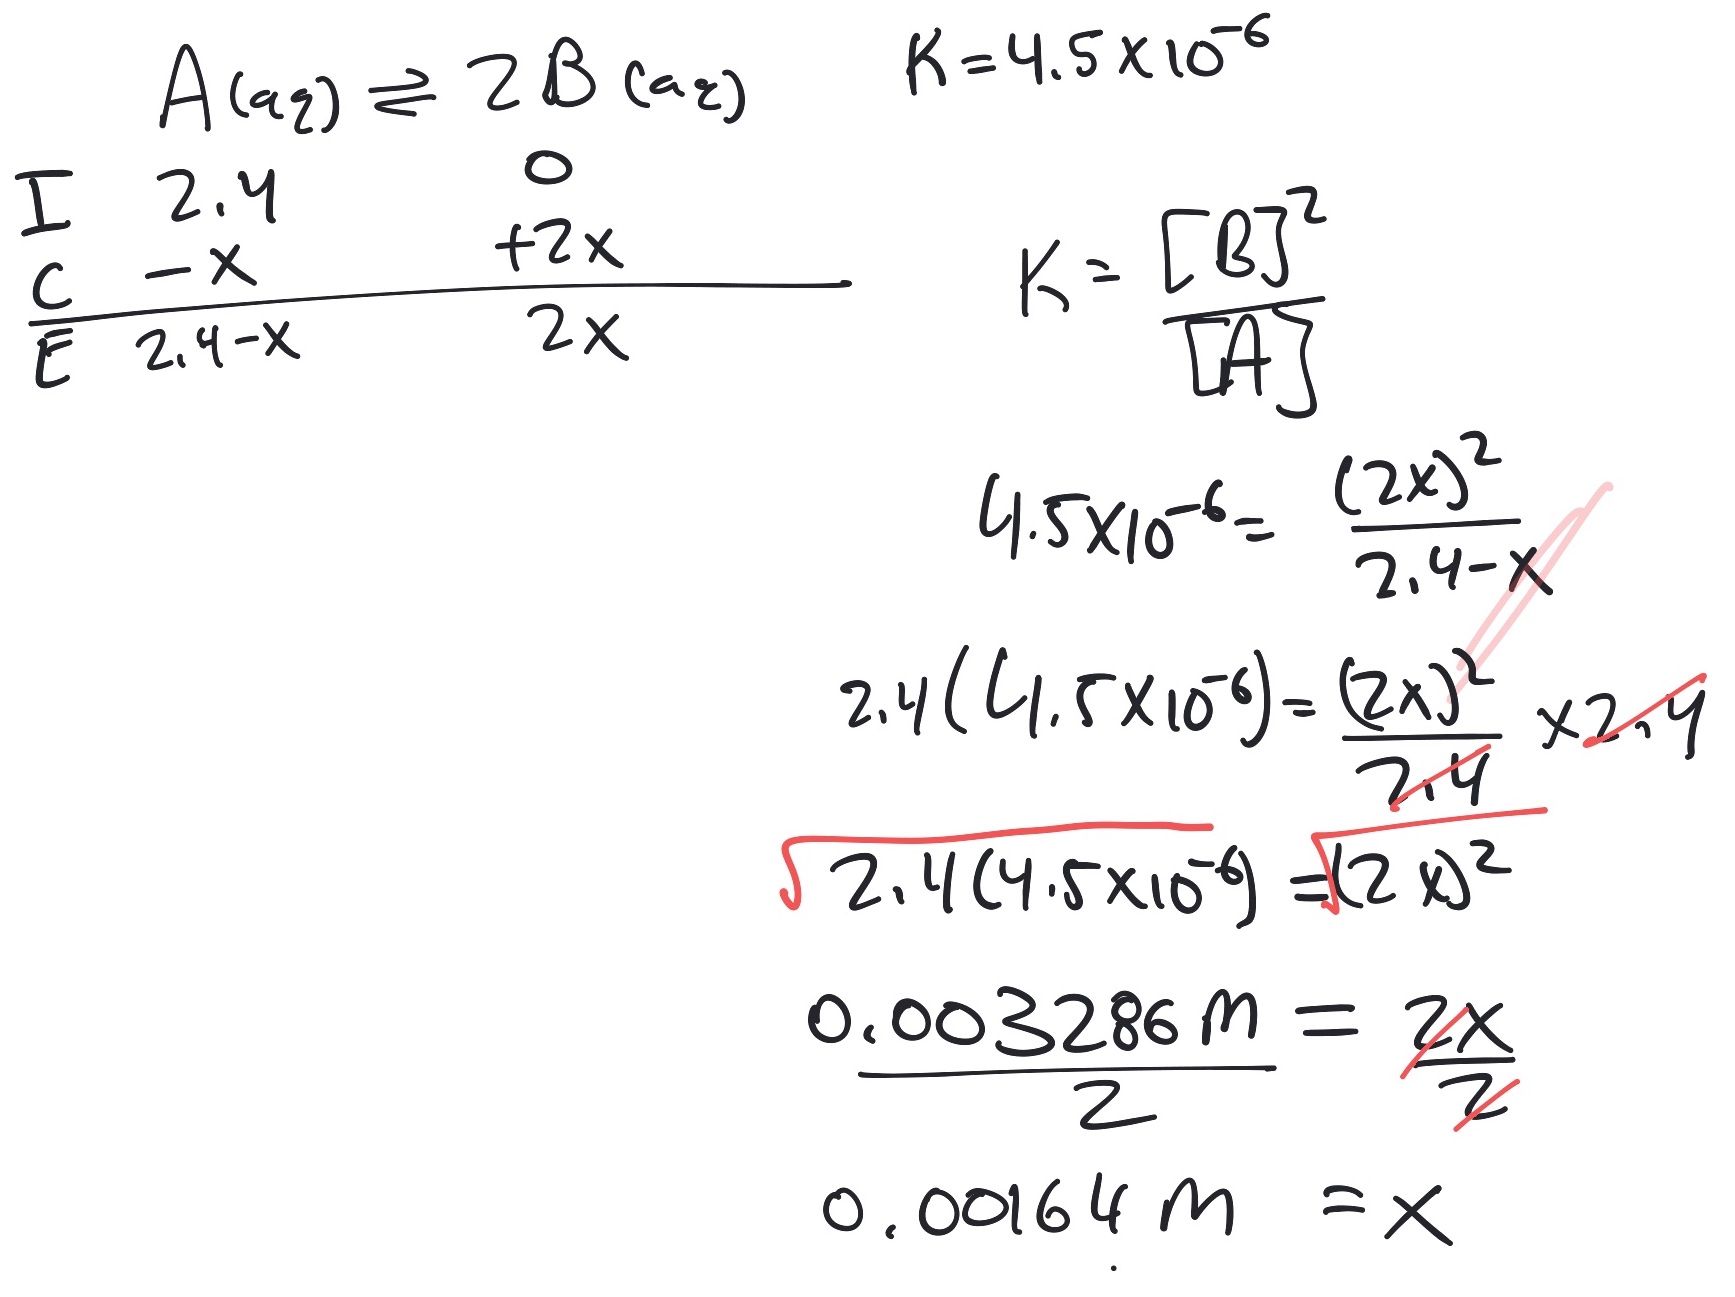 A(aq) ⇌ 2B(aq)
K = 4.5 x 10⁻⁶
I 2.4 0
C - x +2x
E 2.4-x 2x
K = [B]² / [A]
4.5 x 10⁻⁶ = (2x)² / 2.4-x
2.4(4.5 x 10⁻⁶) = (2x)² / 2.4 x 2.4
√2.4(4.5 x 10⁻⁶) = √(2x)²
0.003286 M / 2 = 2x / 2
0.00164 M = x